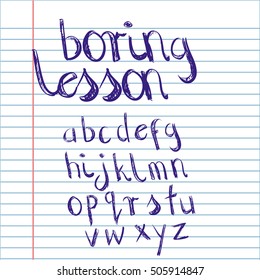 boring
lesson
abcdefg
hijklmn
opqrstu
vwxyz
shutterstock.com · 505914847